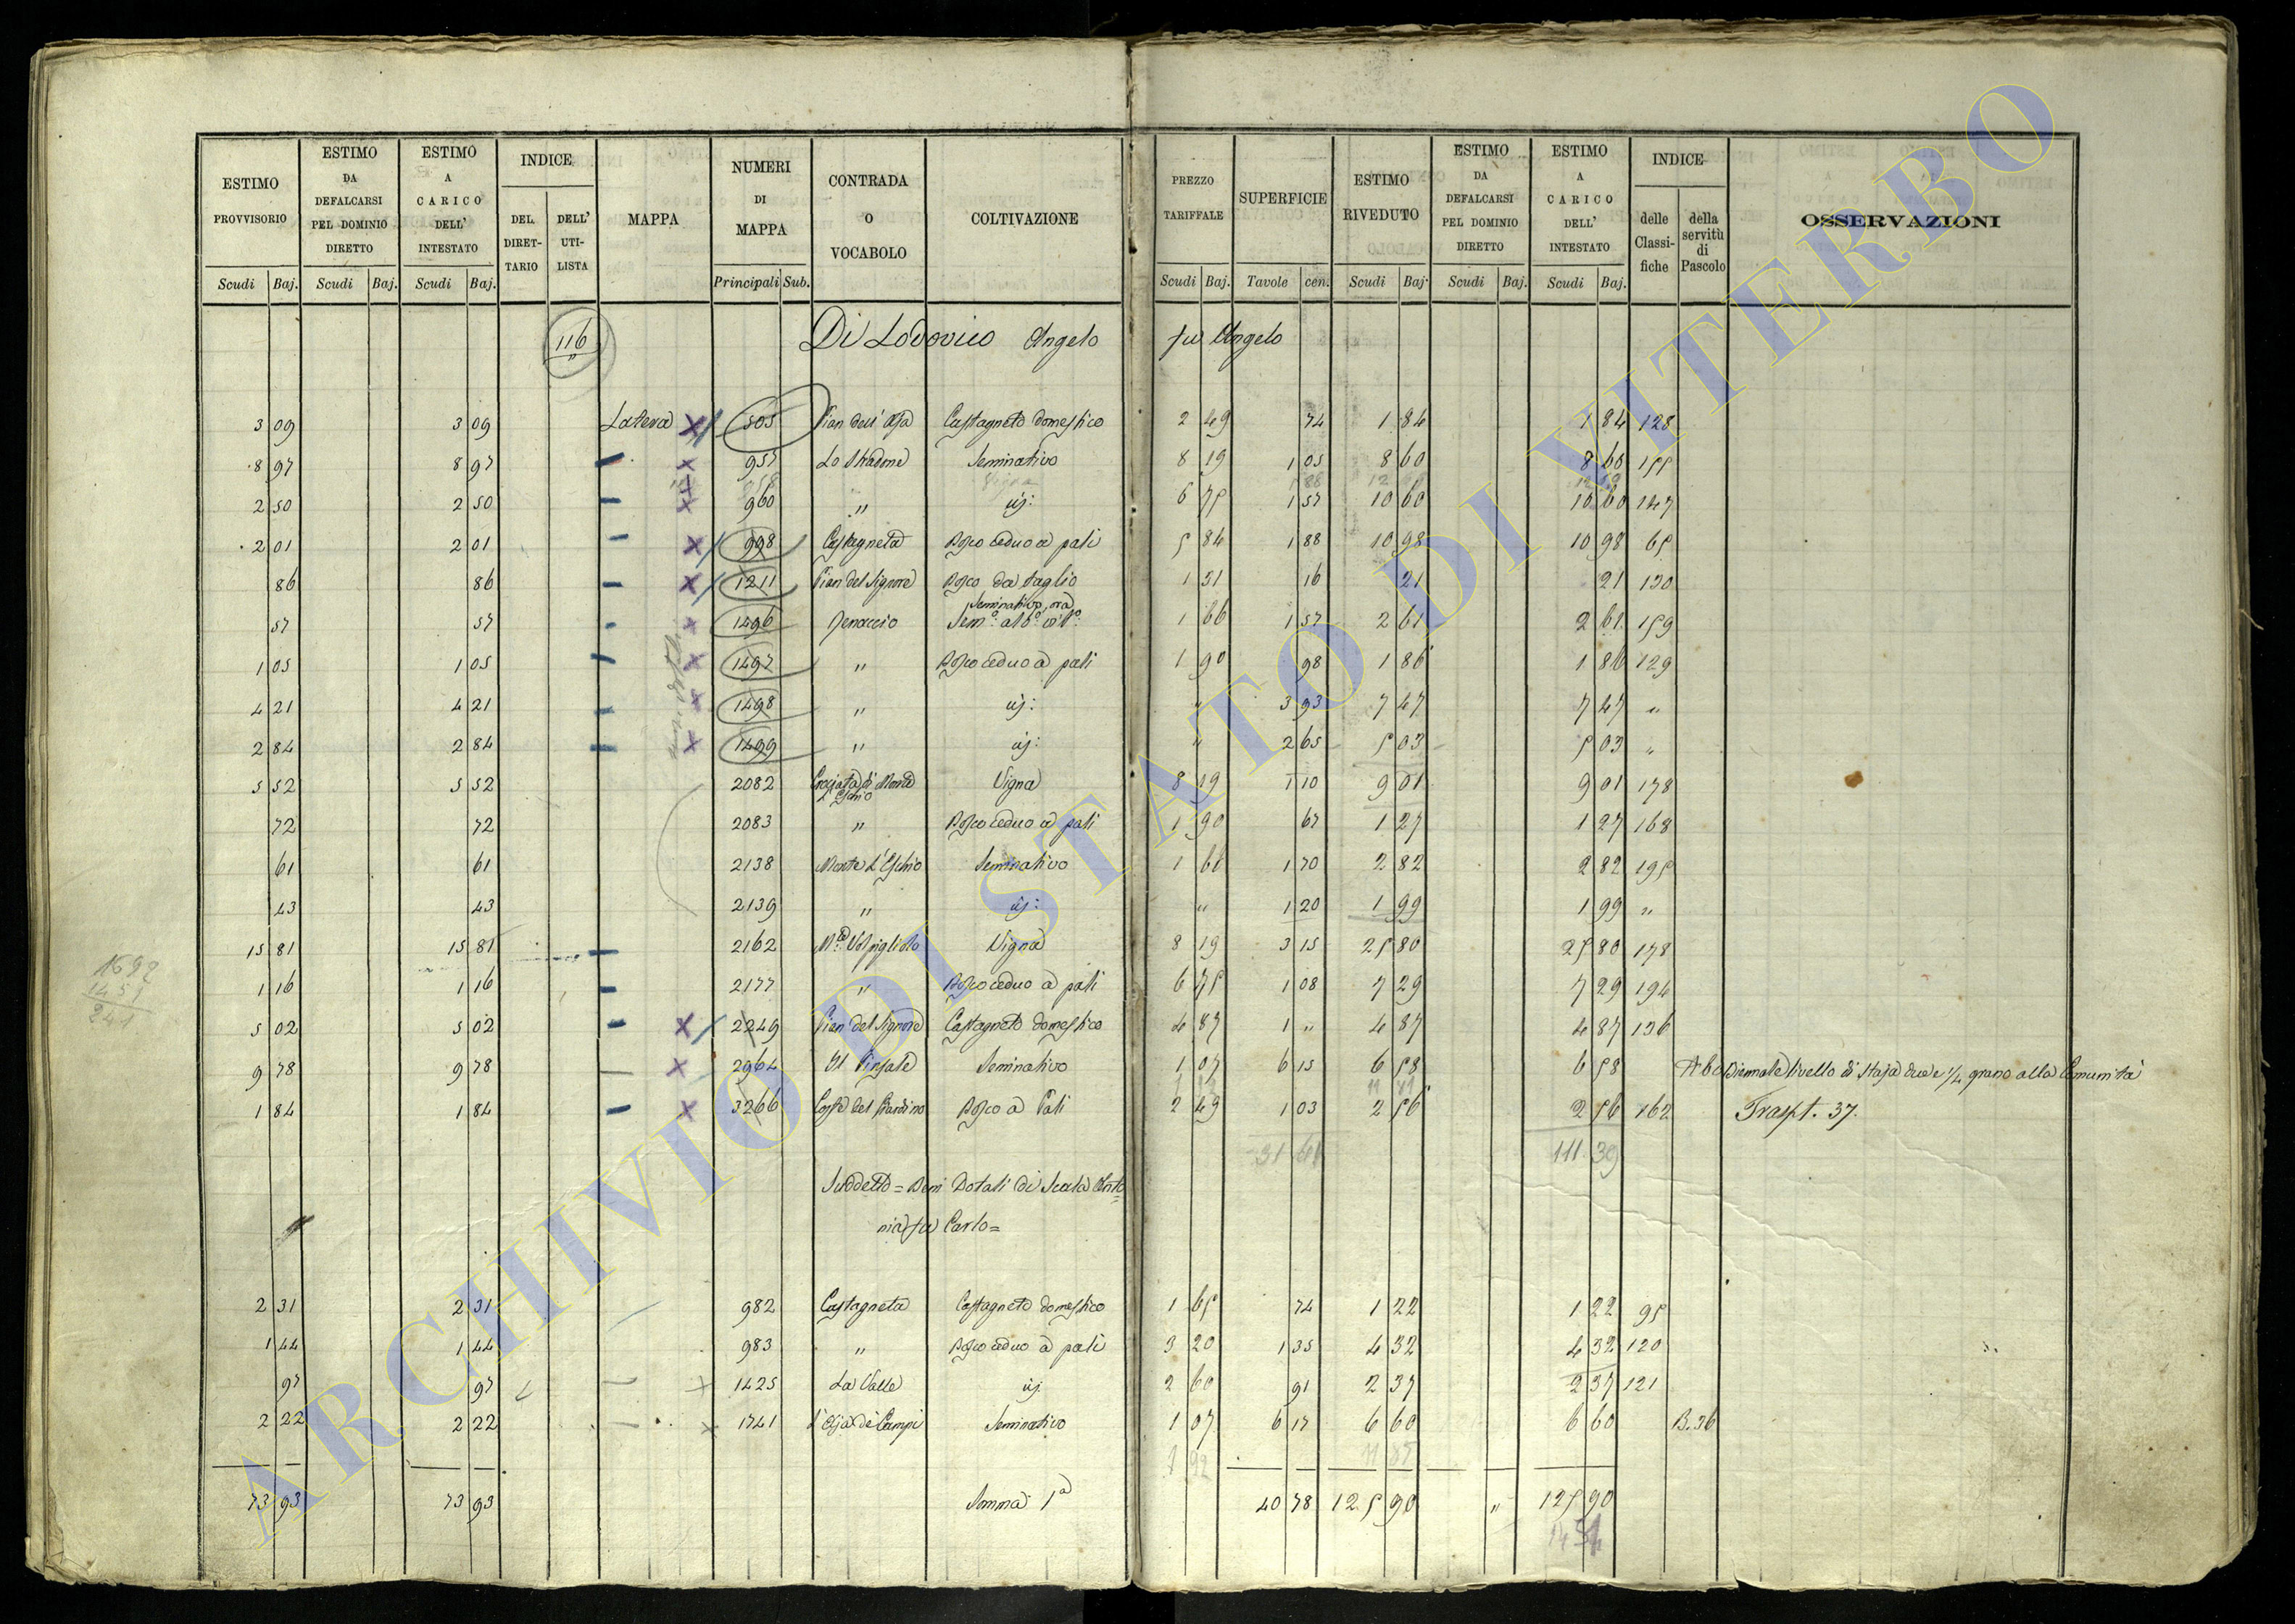 ESTIMO PROVVISORIO Scudi Baj. | ESTIMO DA DEFALCARSI PEL DOMINIO DIRETTO Scudi Baj. | ESTIMO A CARICO DELL' INTESTATO Scudi Baj. | INDICE DEL DIRET-TARIO DELL' UTI-LISTA | MAPPA | NUMERI DI MAPPA Principali Sub. | CONTRADA O VOCABOLO | COLTIVAZIONE | PREZZO TARIFFALE Scudi Baj. | SUPERFICIE Tavole cen. | ESTIMO RIVEDUTO Scudi Baj. | ESTIMO DA DEFALCARSI PEL DOMINIO DIRETTO Scudi Baj. | ESTIMO A CARICO DELL' INTESTATO Scudi Baj. | INDICE delle Classi-fiche della servitù di Pascolo | OSSERVAZIONI
116 Di Lodovico Angelo fu Angelo
3 09 3 09 Latera 505 Pian dell' Castagneto domestico 2 49 74 1 84 1 84 128
8 97 8 97 957 Lo Stradone Seminativo 8 19 1 05 8 60 8 60 155
2 50 2 50 960 " id: 6 75 1 57 10 60 10 60 147
2 01 2 01 998 Castagneta Bosco ceduo a pali 5 84 1 88 10 98 10 98 65
86 86 1211 Pian del Signore Bosco da taglio 1 31 16 21 21 130
57 57 1496 Seminativo, ora Sem: 1 66 1 57 2 61 2 61 159
1 05 1 05 1497 " Bosco ceduo a pali 1 90 98 1 86 1 86 129
4 21 4 21 1498 " id: " 3 93 7 47 7 47 "
2 84 2 84 1499 " id: " 2 65 5 03 5 03 "
5 52 5 52 2082 di Monte Vigna 8 19 1 10 9 01 9 01 178
72 72 2083 " Bosco ceduo a pali 1 90 67 1 27 1 27 168
61 61 2138 Monte Seminativo 1 66 1 70 2 82 2 82 195
43 43 2139 " id: " 1 20 1 99 1 99 "
15 81 15 81 2162 Vigna 8 19 3 15 25 80 25 80 178
1 16 1 16 2177 " Bosco ceduo a pali 6 75 1 08 7 29 7 29 194
5 02 5 02 2249 Pian del Signore Castagneto domestico 4 87 1 " 4 87 4 87 136
9 78 9 78 2964 Il Seminativo 1 07 6 15 6 58 6 58 Biennale livello di staja due e 1/4 grano alla Comunità
1 84 1 84 3266 del Giardino Bosco a Pali 2 49 1 03 2 56 2 56 162 Traspt. 37.
31 61 111 39
Suddetto = Beni Dotali di Scala Anto=
nia fu Carlo=
2 31 2 31 982 Castagneta Castagneto domestico 1 65 74 1 22 1 22 95
1 44 1 44 983 " Bosco ceduo a pali 3 20 1 35 4 32 4 32 120
97 97 1425 La Valle id. 2 60 91 2 37 2 37 121
2 22 2 22 1741 Campi Seminativo 1 07 6 17 6 60 6 60 B.36
73 93 73 93 Somma 1ª 40 78 125 90 " 125 90
1692
1451
241
ARCHIVIO DI STATO DI VITERBO